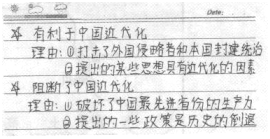 Date:
☆ 有利于中国近代化
理由:①打击了外国侵略者和本国封建统治
②提出的某些思想具有近代化的因素
☆ 阻断了中国近代化
理由:①破坏了中国最先进省份的生产力
②提出的一些政策是历史的倒退